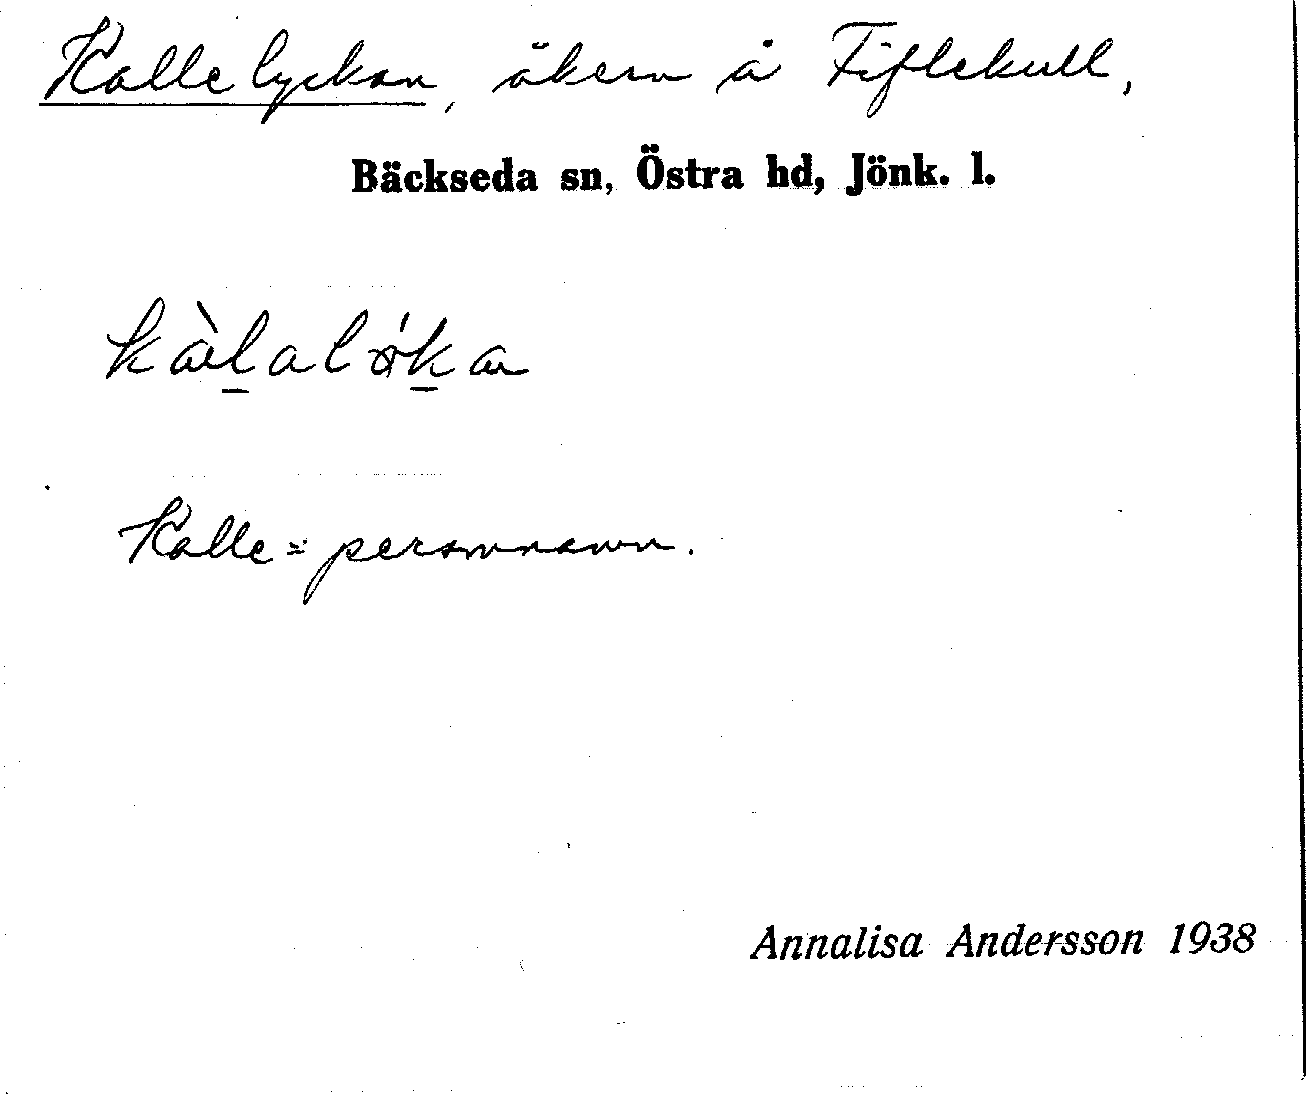 Kallelyckan, åkern å Fiflekull,
Bäckseda sn, Östra hd, Jönk. l.
kàl̠alǿk̠a
Kalle = personnamn.
Annalisa Andersson 1938